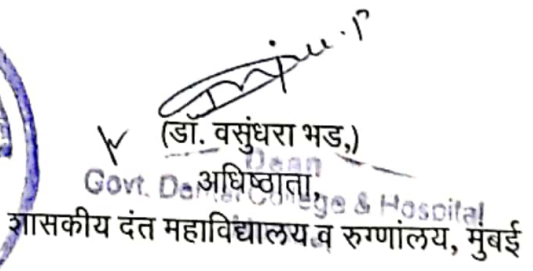 (डॉ. वसुंधरा भड,)
Dean
अधिष्ठाता,
Govt. Dental College & Hospital
शासकीय दंत महाविद्यालय व रुग्णांलय, मुंबई